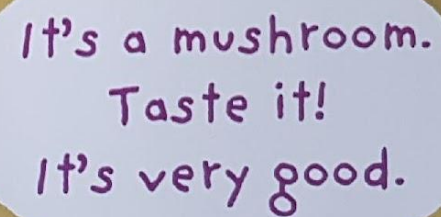 It's a mushroom.
Taste it!
It's very good.